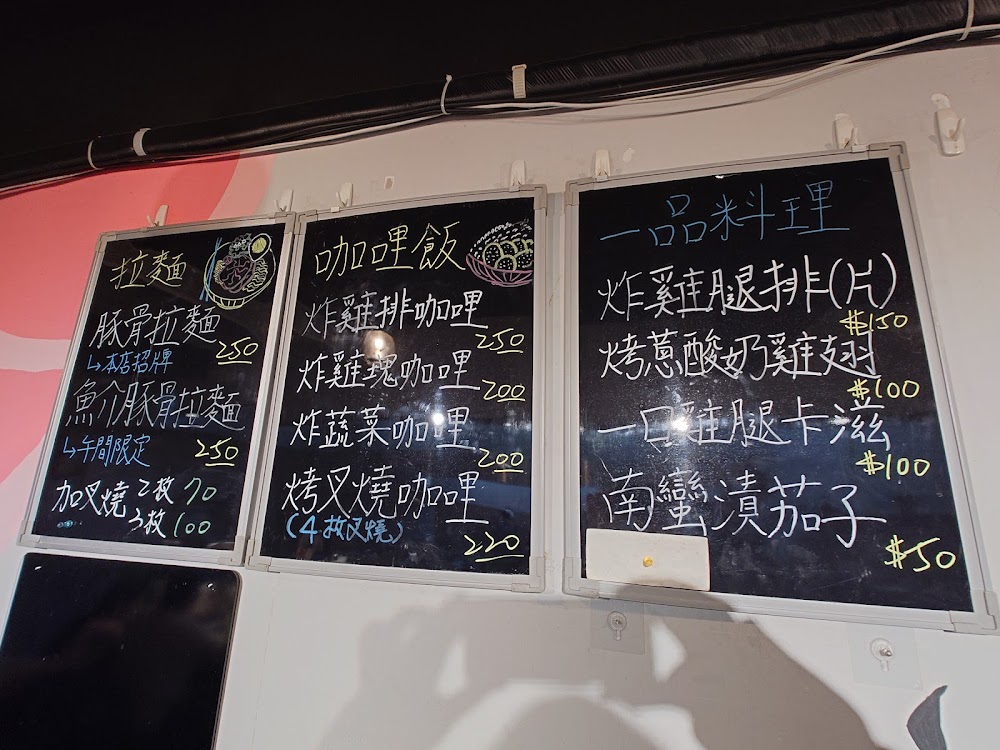 拉麵
豚骨拉麵
250
↳本店招牌
魚介豚骨拉麵
↳午間限定
250
加叉燒 2枚 70
3枚 100
咖哩飯
炸雞排咖哩
250
炸雞塊咖哩
200
炸蔬菜咖哩
200
烤叉燒咖哩
(4枚叉燒)
220
一品料理
炸雞腿排(片)
$150
烤蔥酸奶雞翅
$100
一口雞腿卡滋
$100
南蠻漬茄子
$50